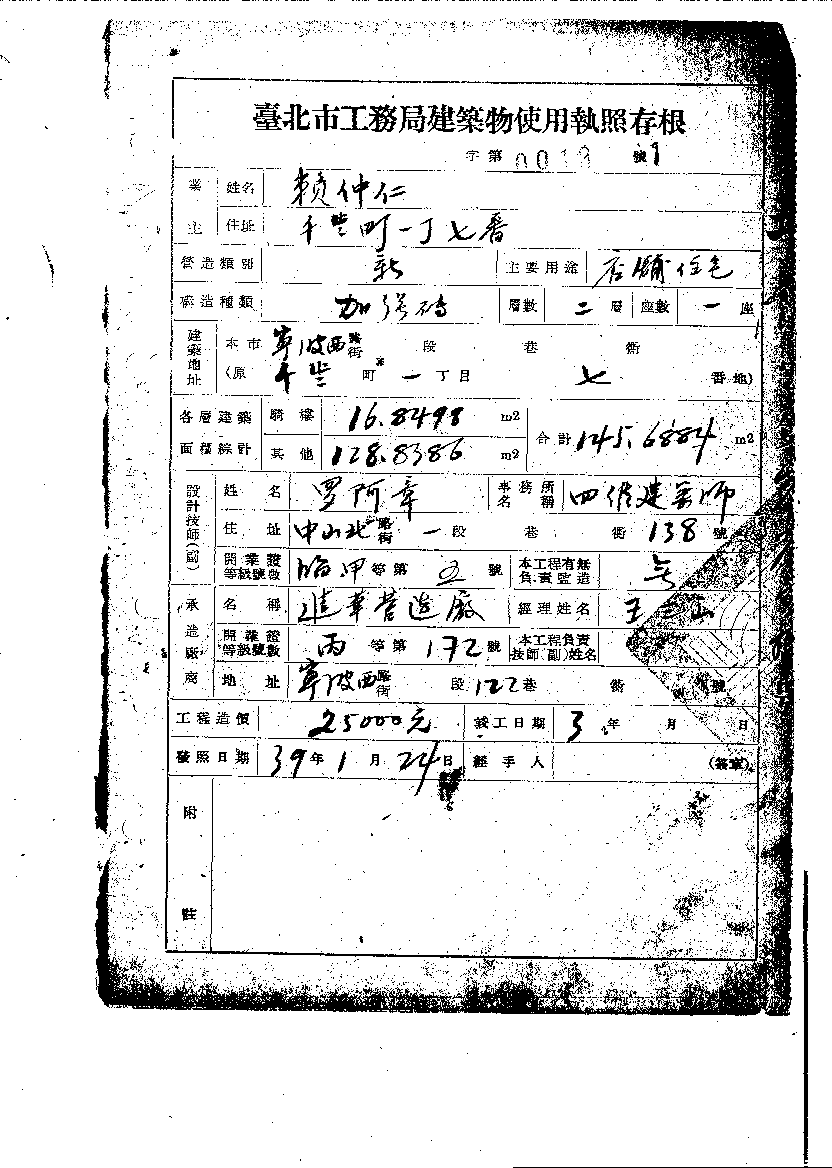 臺北市工務局建築物使用執照存根
字第 0013 號
業主 姓名 賴仲仁
住址 千岁町一丁七番
營造類別 新 主要用途 店舖住宅
構造種類 加强磚 層數 二層 座數 一座
建築地址 本市 寧波西 路街 段 巷 衖
(原 千岁 町 一 丁目 七 番地)
各層建築面積綜計 騎樓 16.8498 m2 合計 145.6884 m2
其他 128.8386 m2
設計技師(副) 姓名 罗阿章 事務所名稱 建築師
住址 中山北 路街 一段 巷 衖 138 號
開業證等級號數 臨甲等第 五 號 本工程有無負責監造 無
承造廠商 名稱 進華營造廠 經理姓名 王 山
開業證等級號數 丙 等第 172 號 本工程負責技師(副)姓名
地址 寧波西 路街 段 122 巷 衖 號
工程造價 25000元 竣工日期 3 年 月 日
發照日期 39年1月24日 經手人 (簽章)
附註